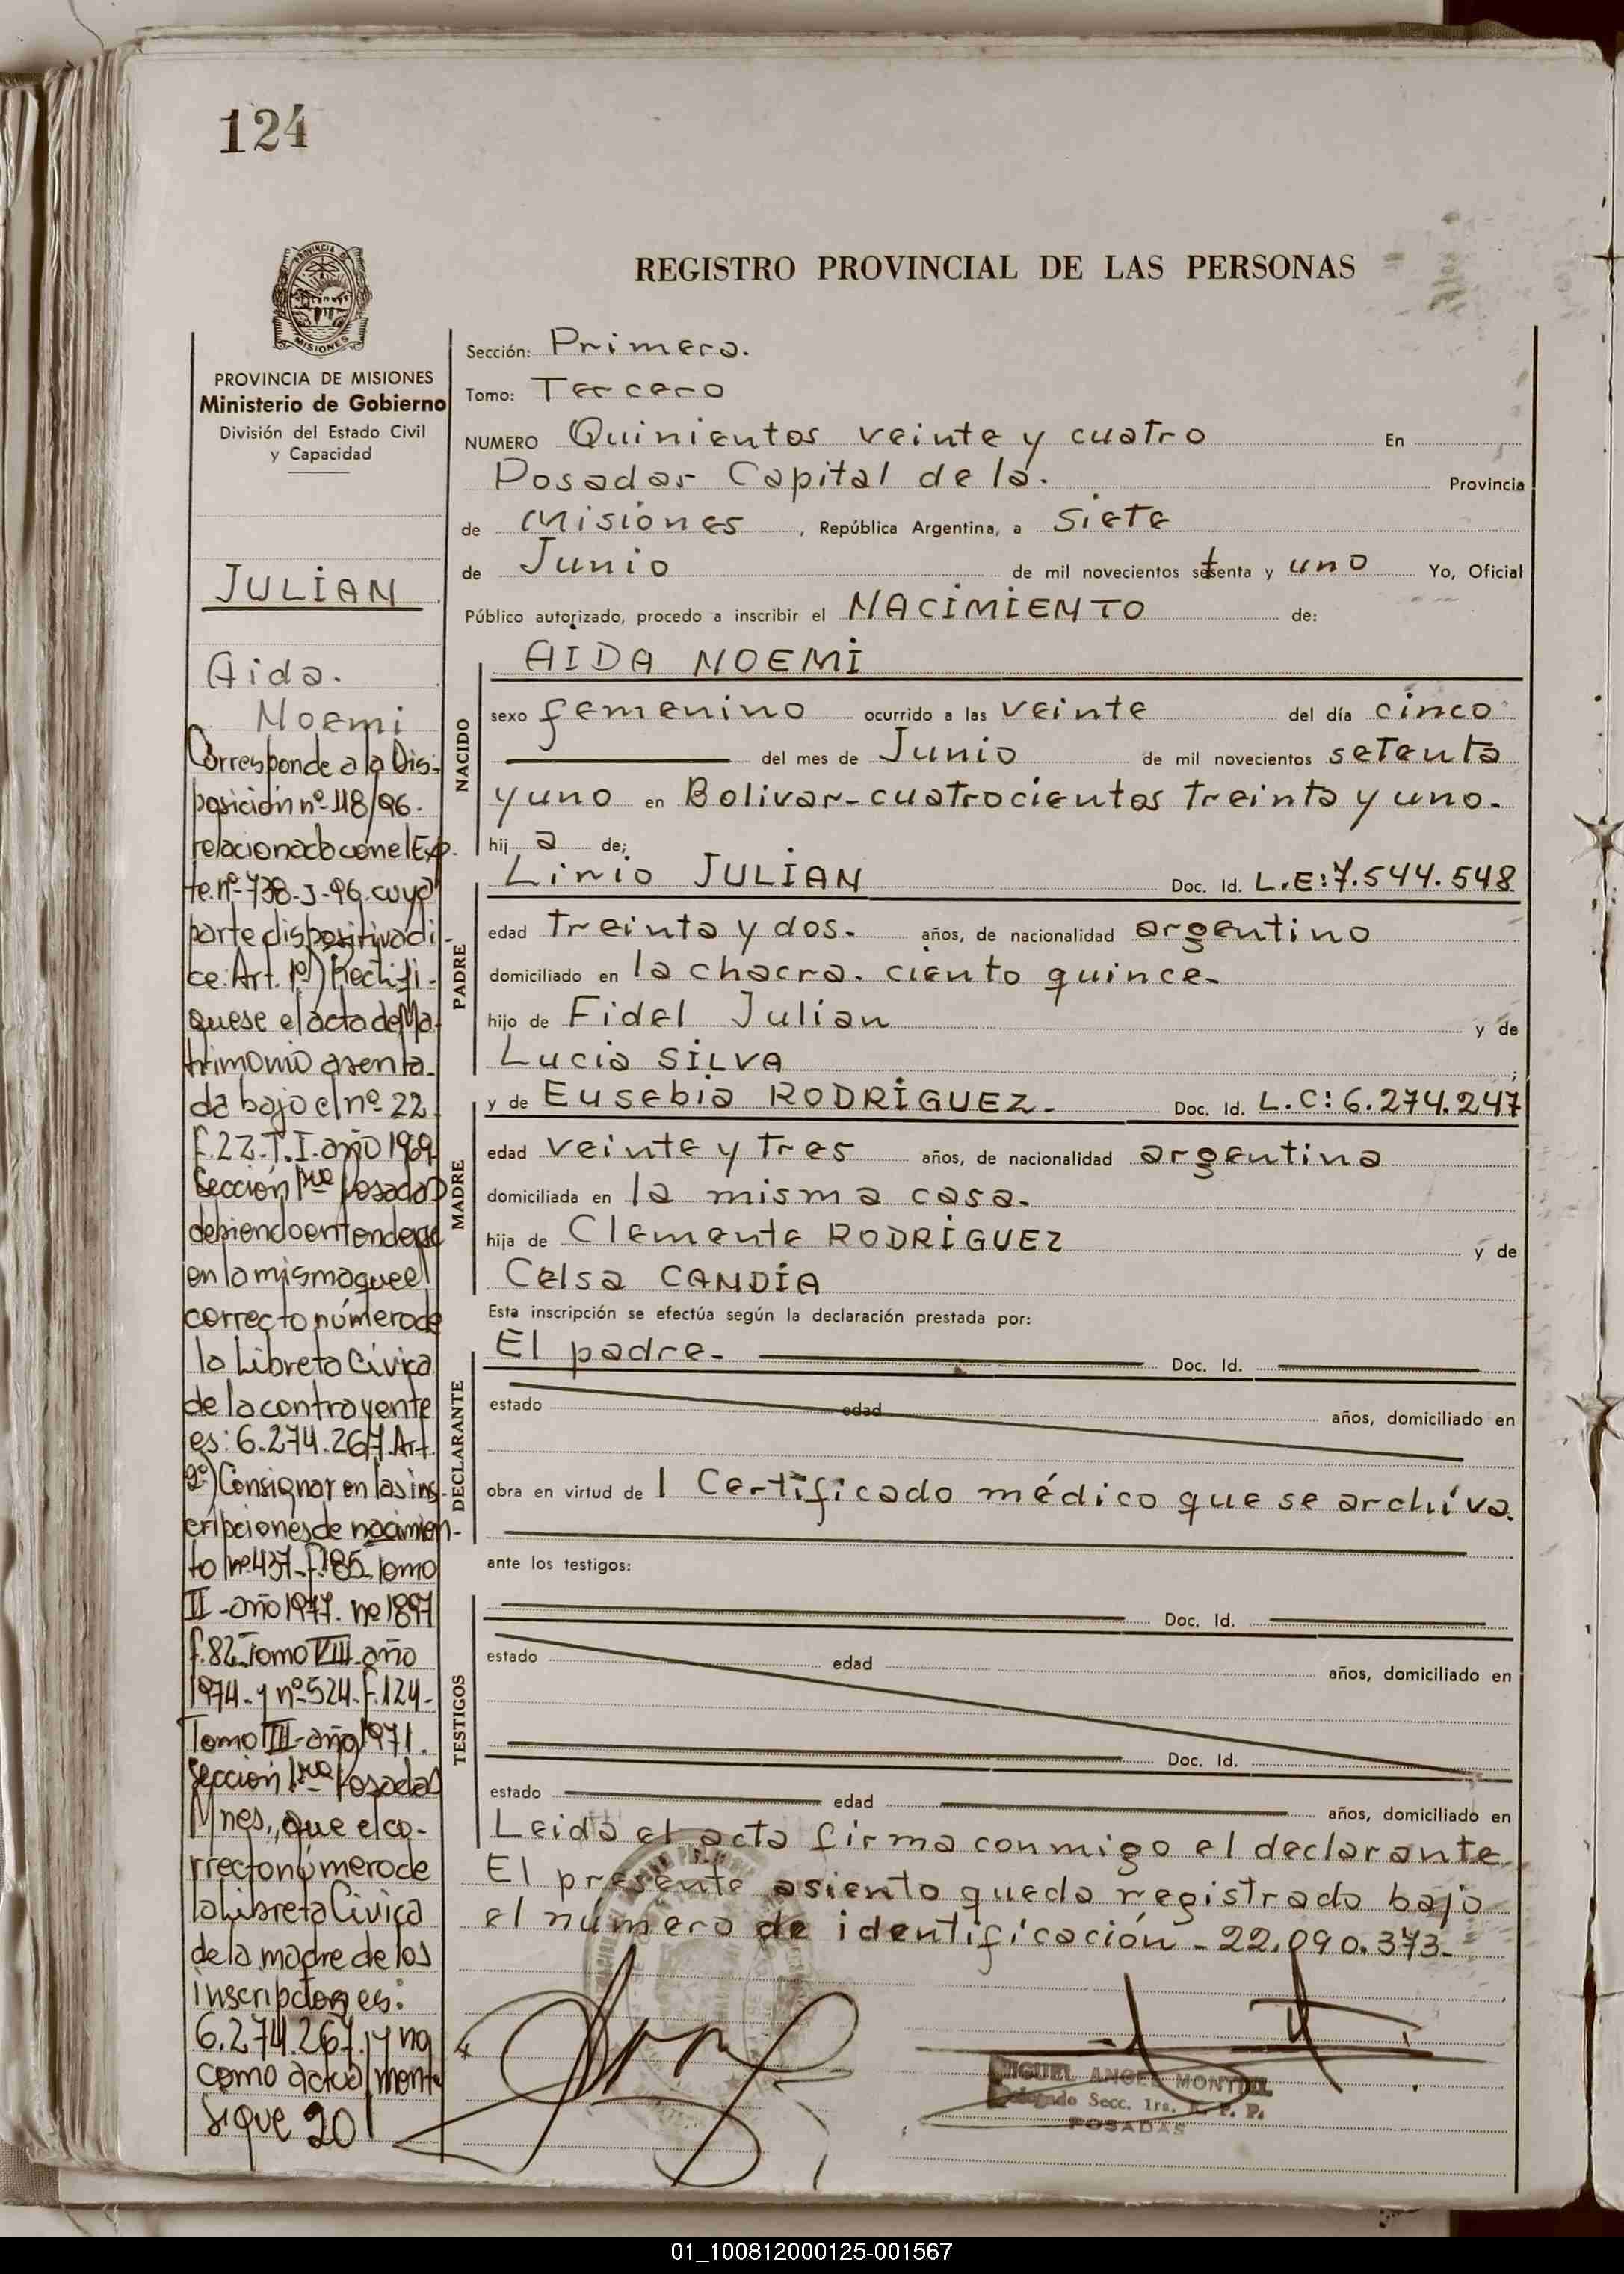 124
REGISTRO PROVINCIAL DE LAS PERSONAS
PROVINCIA
MISIONES
PROVINCIA DE MISIONES
Ministerio de Gobierno
División del Estado Civil
y Capacidad
JULIAN
Aida.
Noemi
Corresponde a la Dis-
posición nº 118/96.
relacionado con el Exp.
te. nº 738-J-96. cuya
parte dispositiva di-
ce: Art. 1º) Rectifi-
quese el acta de Ma-
trimonio asenta-
da bajo el nº 22
f.22-T.I. año 1969
Sección 1ra Posadas
debiendo entenderse
en la misma que el
correcto número de
la Libreta Cívica
de la contrayente
es: 6.274.267. Art.
2º) Consignar en las ins-
cripciones de nacimien-
to nº 437-f.185. Tomo
II-año 1977. nº 1897
f.82 Tomo VIII-año
1974. y nº 524-f.124-
Tomo III-año 1971.
Sección 1ra Posadas
Mnes., que el co-
rrecto número de
la Libreta Cívica
de la madre de los
inscriptos es:
6.274.267. y no
como actualmente
Sigue 20
Sección: Primera.
Tomo: Tercero
NUMERO Quinientos veinte y cuatro En
Posadas Capital de la. Provincia
de Misiones, República Argentina, a Siete
de Junio de mil novecientos setenta y uno Yo, Oficial
Público autorizado, procedo a inscribir el NACIMIENTO de:
NACIDO
AIDA NOEMI
sexo femenino ocurrido a las veinte del día cinco
del mes de Junio de mil novecientos setenta
y uno en Bolivar-cuatrocientos treinta y uno.
hij a de;
PADRE
Linio JULIAN Doc. Id. L.E:7.544.548
edad treinta y dos. años, de nacionalidad argentino
domiciliado en la chacra. ciento quince-
hijo de Fidel Julian y de
Lucia SILVA ;
MADRE
y de Eusebia RODRIGUEZ- Doc. Id. L.C: 6.274.247
edad veinte y tres años, de nacionalidad argentina
domiciliada en la misma casa-
hija de Clemente RODRIGUEZ y de
Celsa CANDIA
Esta inscripción se efectúa según la declaración prestada por:
DECLARANTE
El padre- Doc. Id.
estado edad años, domiciliado en
obra en virtud de l Certificado médico que se archiva.
ante los testigos:
TESTIGOS
Doc. Id.
estado edad años, domiciliado en
Doc. Id.
estado edad años, domiciliado en
Leida el acta firma conmigo el declarante
El presente asiento queda registrado bajo
el número de identificación-22.090.373-
MIGUEL ANGEL MONTIEL
Delegado Secc. 1ra. R. P. P.
POSADAS
01_100812000125-001567